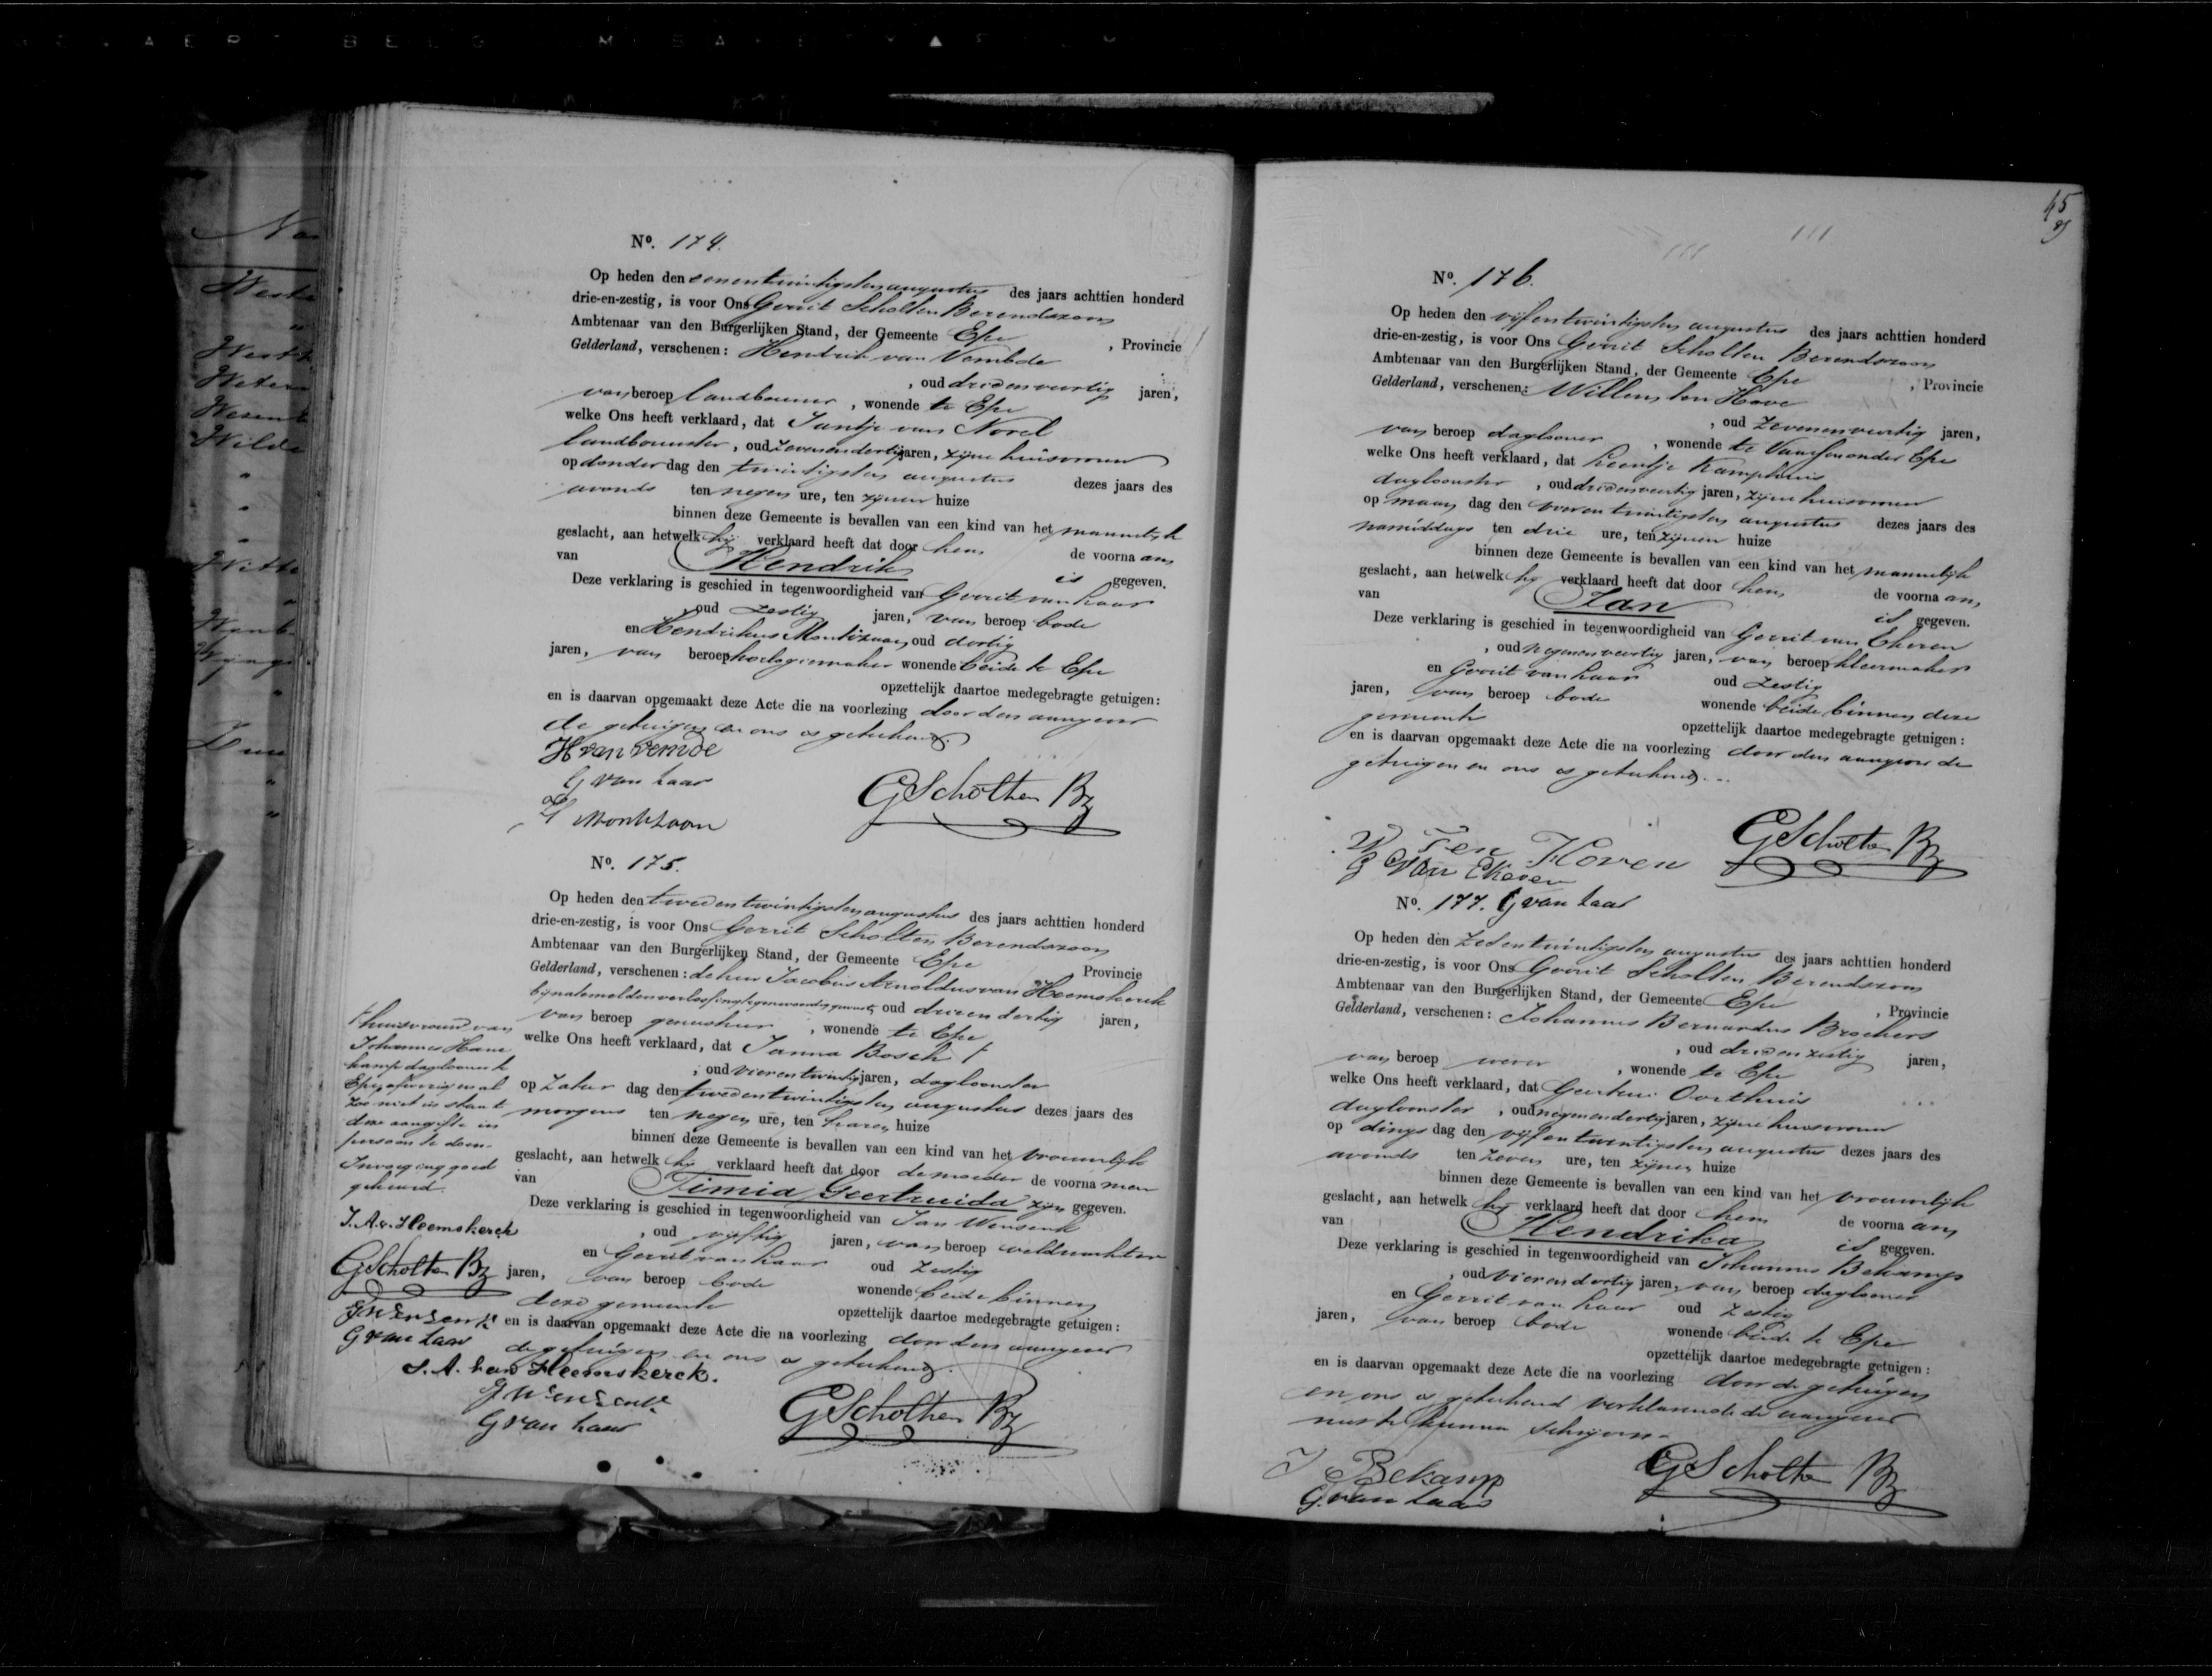 No. 174.
Op heden den eenentwintigsten augustus des jaars achttien honderd
drie-en-zestig, is voor Ons Gerrit Scholten Berendszoon
Ambtenaar van den Burgerlijken Stand, der Gemeente Epe , Provincie
Gelderland, verschenen: Hendrik van Vemde
, oud drieenveertig jaren,
van beroep landbouwer , wonende te Epe
welke Ons heeft verklaard, dat Jantje van Norel
landbouwster, oud zevenendertig jaren, zijne huisvrouw
op donder dag den twintigsten augustus dezes jaars des
avonds ten negen ure, ten zijnen huize
binnen deze Gemeente is bevallen van een kind van het mannelijk
geslacht, aan hetwelk hij verklaard heeft dat door hem de voorna am
van Hendrik is gegeven.
Deze verklaring is geschied in tegenwoordigheid van Gerrit van Laar
oud zestig jaren, van beroep bode
en Hendrikus Montizaan, oud dertig
jaren, van beroep horlogiemaker wonende beide te Epe
opzettelijk daartoe medegebragte getuigen:
en is daarvan opgemaakt deze Acte die na voorlezing door den aangever
de getuigen en ons is geteekend.
H van vemde
G van Laar
GScholten Bz
No. 175.
Op heden den tweeentwintigsten augustus des jaars achttien honderd
drie-en-zestig, is voor Ons Gerrit Scholten Berendszoon
Ambtenaar van den Burgerlijken Stand, der Gemeente Epe Provincie
Gelderland, verschenen: de heer Jacobus Arnoldus van Heemskerck
bij natemelden verlossing tegenwoordig geweest, oud drieendertig jaren,
van beroep geneesheer , wonende te Epe
welke Ons heeft verklaard, dat Janna Bosch
, oud vierentwintig jaren, dagloonster
op Zatur dag den tweeentwintigsten augustus dezes jaars des
morgens ten negen ure, ten haren huize
binnen deze Gemeente is bevallen van een kind van het vrouwelijk
geslacht, aan hetwelk hij verklaard heeft dat door de moeder de voorna men
van Timia Geertruida zijn gegeven.
Deze verklaring is geschied in tegenwoordigheid van Jan Wensink
, oud vijftig jaren, van beroep veldwachter
en Gerrit van Laar oud zestig
jaren, van beroep bode wonende beide binnen
deze gemeente opzettelijk daartoe medegebragte getuigen:
en is daarvan opgemaakt deze Acte die na voorlezing door den aangever
de getuigen en ons is geteekend.
huisvrouw van
Johannes Hane
kamp dagloner te
Epe, afwezig en al
zoo niet in staat
deze aangifte in
persoon te doen.
Invoeging goed
gekeurd.
J. A. v. Heemskerck
GScholten Bz
G van Laar
J. A. van Heemskerck.
G van Laar
GScholten Bz
45
No. 176.
Op heden den vijfentwintigsten augustus des jaars achttien honderd
drie-en-zestig, is voor Ons Gerrit Scholten Berendszoon
Ambtenaar van den Burgerlijken Stand, der Gemeente Epe , Provincie
Gelderland, verschenen: Willem ten Hove
, oud zevenenveertig jaren,
van beroep daglooner , wonende te Vaassen onder Epe
welke Ons heeft verklaard, dat Reentje Kamphuis
dagloonster , oud drieenveertig jaren, zijne huisvrouw
op maan dag den vierentwintigsten augustus dezes jaars des
namiddags ten drie ure, ten zijnen huize
binnen deze Gemeente is bevallen van een kind van het mannelijk
geslacht, aan hetwelk hij verklaard heeft dat door hem de voorna am
van Jan is gegeven.
Deze verklaring is geschied in tegenwoordigheid van Gerrit van Essen
, oud negenenveertig jaren, van beroep kleermaker
en Gerrit van Laar oud zestig
jaren, van beroep bode wonende beide binnen deze
gemeente opzettelijk daartoe medegebragte getuigen:
en is daarvan opgemaakt deze Acte die na voorlezing door den aangever de
getuigen en ons is geteekend.
W Ten Hoven
GScholten Bz
G van Laar
No. 177.
Op heden den zesentwintigsten augustus des jaars achttien honderd
drie-en-zestig, is voor Ons Gerrit Scholten Berendszoon
Ambtenaar van den Burgerlijken Stand, der Gemeente Epe , Provincie
Gelderland, verschenen: Johannes Bernardus Brochers
, oud drieenzestig jaren,
van beroep wever , wonende te Epe
welke Ons heeft verklaard, dat Geertrui Oorthuis
dagloonster , oud negenendertig jaren, zijne huisvrouw
op dings dag den vijfentwintigsten augustus dezes jaars des
avonds ten zeven ure, ten zijnen huize
binnen deze Gemeente is bevallen van een kind van het vrouwelijk
geslacht, aan hetwelk hij verklaard heeft dat door hem de voorna am
van Hendrika is gegeven.
Deze verklaring is geschied in tegenwoordigheid van Johannes Bekamp
, oud vierendertig jaren, van beroep daglooner
en Gerrit van Laar oud zestig
jaren, van beroep bode wonende beide te Epe
opzettelijk daartoe medegebragte getuigen:
en is daarvan opgemaakt deze Acte die na voorlezing door de getuigen
en ons is geteekend verklarende de aangever
niet te kunnen schrijven.
J Bekamp
G. van Laar
GScholten Bz